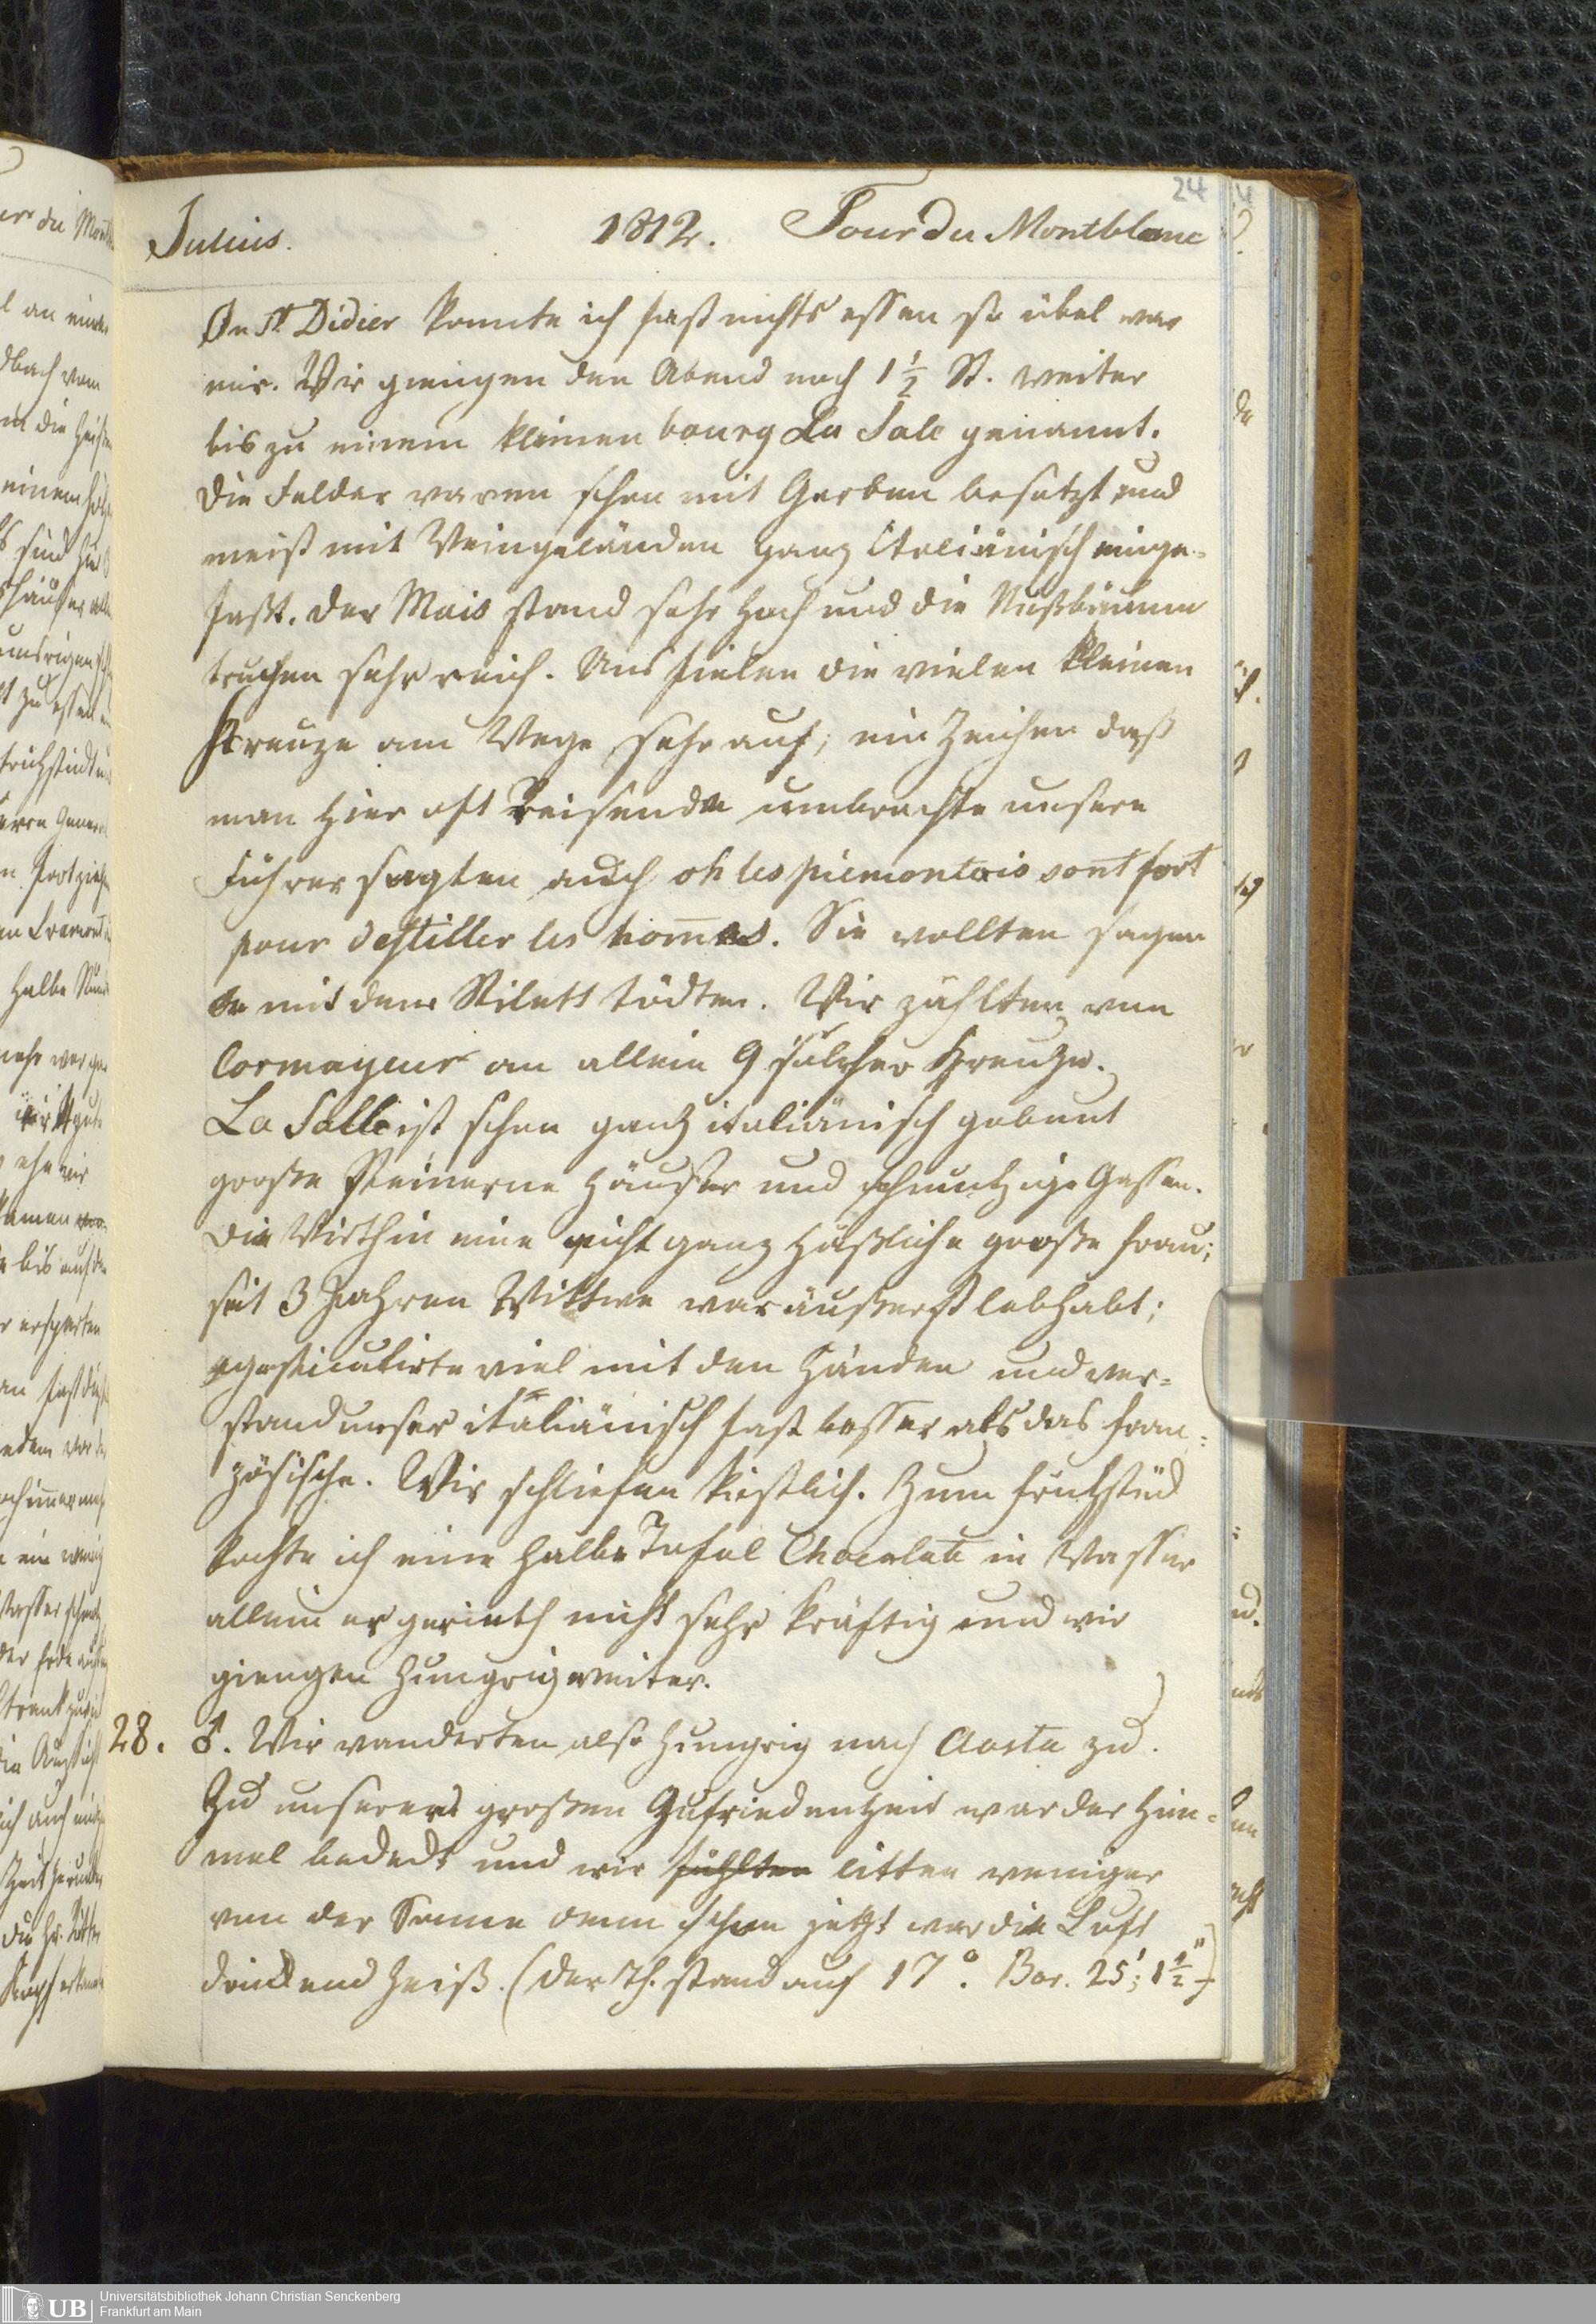 24
Julius. 1812. Tour du Montblanc
In St Didier konnte ich fast nichts essen so übel war
mir. Wir giengen den Abend noch 1 1/2 St. weiter
bis zu einem kleinen bourg La Sale genannt.
Die Felder waren schon mit Garben besetzt und
meist mit Weingeländen ganz italiänisch einge-
fasst. Der Mais stand sehr hoch und die Nußbäume
truchen sehr reich. Uns fielen die vielen kleinen
Kreuze am Wege sehr auf; ein Zeichen daß
man hier oft Reisende umbrachte unsere
Führer sagten auch oh les piemontois sont fort
pour destiller les hom̄es. Sie wollten sagen
mit dem Stilett tödten. Wir zählten von
Cormayeur an allein 9 solcher Kreuze.
La Salle ist schon ganz italiänisch gebaut
große steinerne Häuser und schmutzige Gassen.
Die Wirthin eine nicht ganz häßliche große Frau;
seit 3 Jahren Wittwe war äußerst lebhabt;
gesticulirte viel mit den Händen und ver=
stand unser italiänisch fast besser als das fran=
zösische. Wir schliefen köstlich. Zum Frühstück
kochte ich eine halbe Tafel Chocolate in Wasser
allein er gerieth nicht sehr kräftig und wir
giengen hungrig weiter.
28. ♂. Wir wanderten also hungrig nach Aosta zu.
Zu unserer großen Zufriedenheit war der Him=
mel bedeckt und wir fühlten litten weniger
von der Sonne denn schon jetzt war die Luft
drückend heiß. (Der Th. stand auf 17°. Bar. 25', 1 1/2")
UB Universitätsbibliothek Johann Christian Senckenberg
Frankfurt am Main